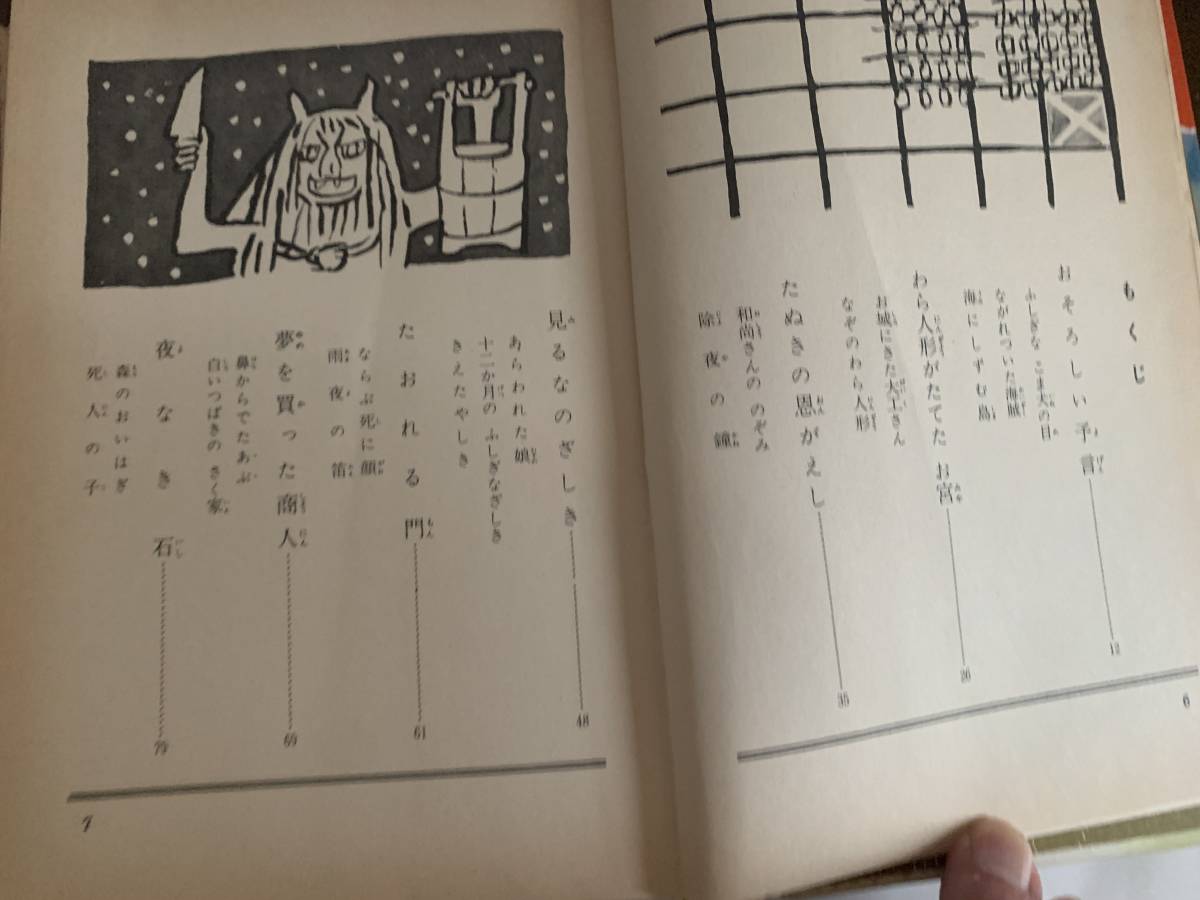 もくじ
おそろしい予言 12
ふしぎな こま犬の目
ながれついた海賊
海にしずむ島
わら人形がたてた お宮 26
お城にきた大工さん
なぞのわら人形
たぬきの恩がえし 35
和尚さんの のぞみ
除夜の鐘
6
見るなのざしき 48
あらわれた娘
十二か月の ふしぎなざしき
きえたやしき
たおれる門 61
ならぶ死に顔
雨夜の笛
夢を買った商人 69
鼻からでたあぶ
白いつばきの さく家
夜なき石 79
森のおいはぎ
死人の子
7